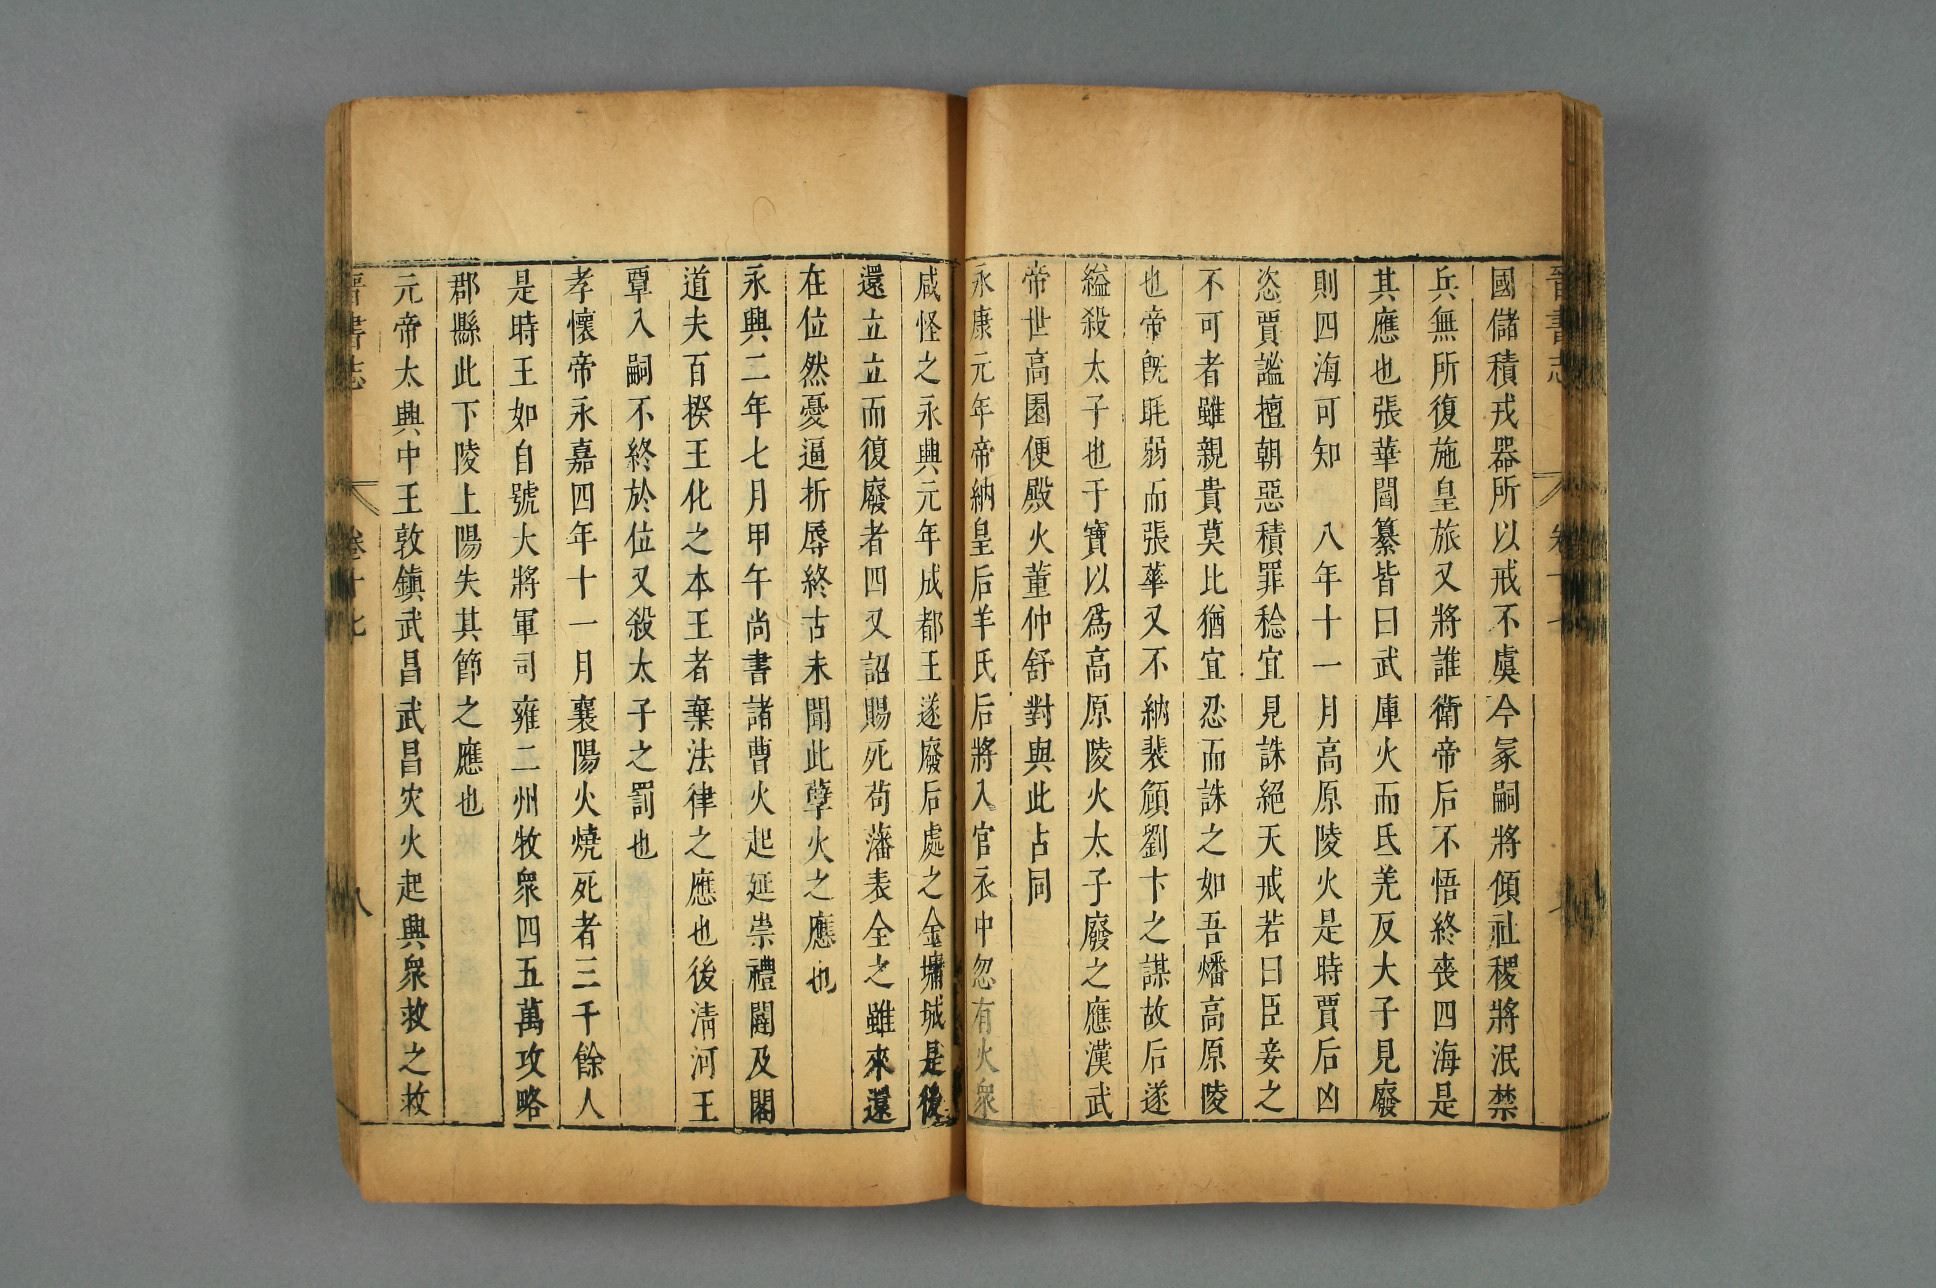 晉書志 卷十七 七
國儲積戎器所以戒不虞今冢嗣將傾社稷將泯禁
兵無所復施皇旅又將誰衛帝后不悟終喪四海是
其應也張華閻纂皆曰武庫火而氐羌反太子見廢
則四海可知 八年十一月高原陵火是時賈后凶
恣賈謐擅朝惡積罪稔宜見誅絕天戒若曰臣妾之
不可者雖親貴莫比猶宜忍而誅之如吾燔高原陵
也帝旣眊弱而張華又不納裴頠劉卞之謀故后遂
縊殺太子也于寶以爲高原陵火太子廢之應漢武
帝世高園便殿火董仲舒對與此占同
永康元年帝納皇后羊氏后將入官衣中忽有火衆
咸怪之永興元年成都王遂廢后處之金墉城是後
還立立而復廢者四又詔賜死荀藩表全之雖來還
在位然憂逼折辱終古未聞此孽火之應也
永興二年七月甲午尚書諸曹火起延崇禮闥及閣
道夫百揆王化之本王者棄法律之應也後淸河王
覃入嗣不終於位又殺太子之罰也
孝懷帝永嘉四年十一月襄陽火燒死者三千餘人
是時王如自號大將軍司雍二州牧衆四五萬攻略
郡縣此下陵上陽失其節之應也
元帝太興中王敦鎮武昌武昌灾火起興衆救之救
晉書志 卷十七 八